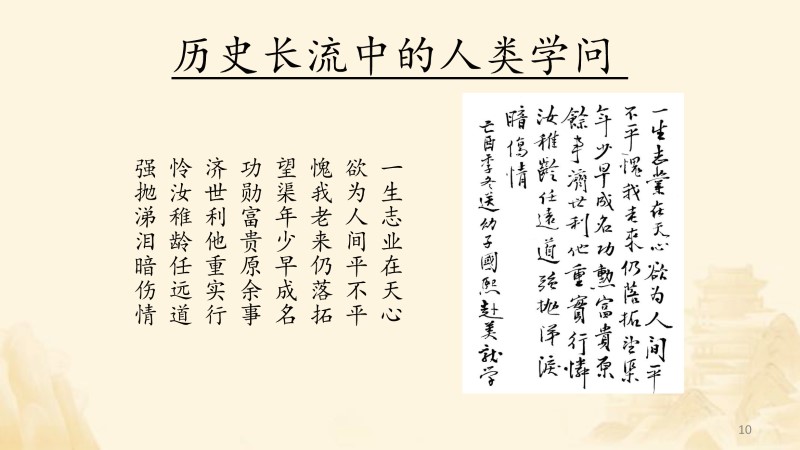 历史长流中的人类学问
一生志业在天心
欲为人间平不平
愧我老来仍落拓
望渠年少早成名
功勋富贵原余事
济世利他重实行
怜汝稚龄任远道
强抛涕泪暗伤情
一生志業在天心欲为人间平
不平愧我老来仍落拓望渠
年少早成名功勳富貴原
餘事濟世利他重實行憐
汝稚齡任遠道強抛涕淚
暗傷情
乙酉季冬送幼子國熙赴美就学
10